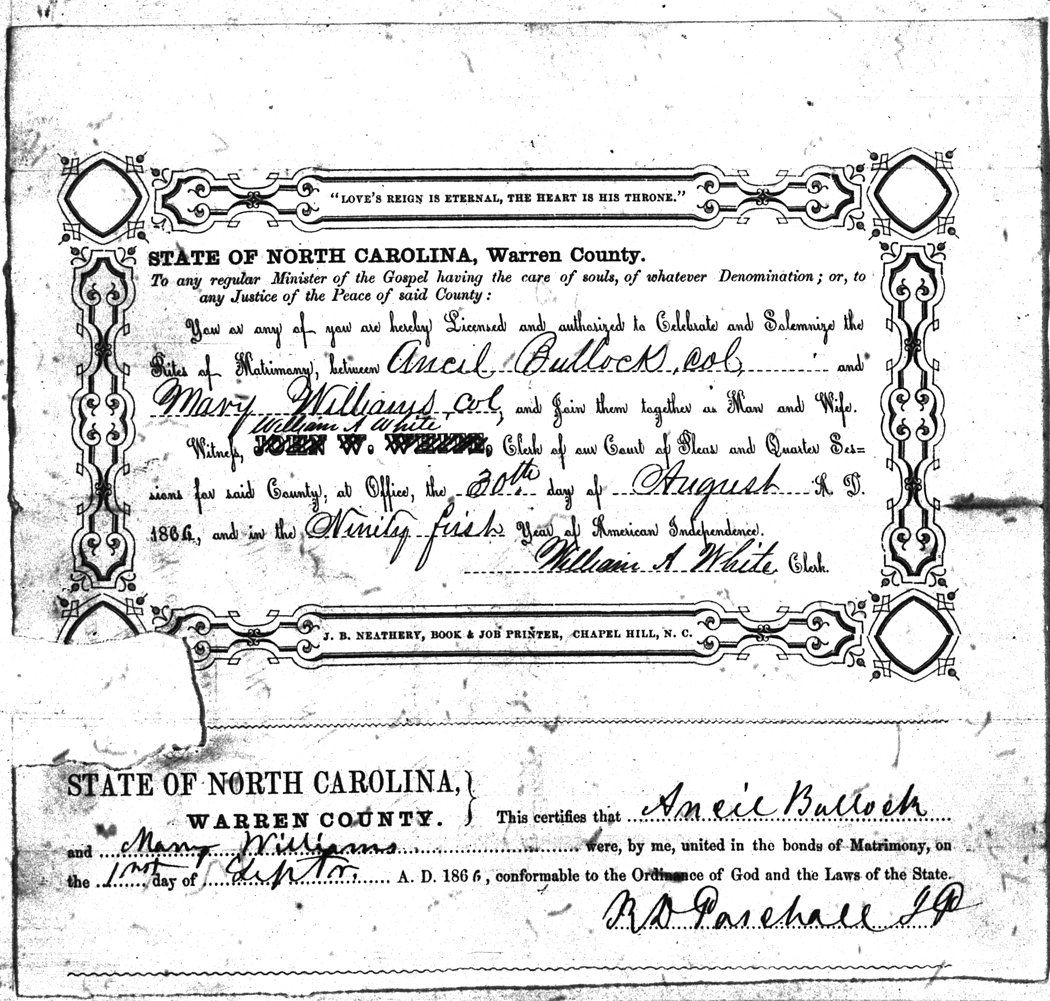 "LOVE'S REIGN IS ETERNAL, THE HEART IS HIS THRONE."
STATE OF NORTH CAROLINA, Warren County.
To any regular Minister of the Gospel having the care of souls, of whatever Denomination; or, to
any Justice of the Peace of said County:
You or any of you are hereby Licensed and authorized to Celebrate and Solemnize the
Rites of Matrimony, between Ancil Bullock, col, and
Mary Williams, col, and Join them together as Man and Wife.
William A White
Witness, JOHN W. WHITE, Clerk of our Court of Pleas and Quarter Ses=
sions for said County, at Office, the 30th day of August A D.
1866, and in the Ninity first Year of American Independence.
William A White Clerk.
J. B. NEATHERY, BOOK & JOB PRINTER, CHAPEL HILL, N. C.
STATE OF NORTH CAROLINA,
WARREN COUNTY. } This certifies that Ancil Bullock
and Mary Williams were, by me, united in the bonds of Matrimony, on
the 1 day of Sept A. D. 1866, conformable to the Ordinance of God and the Laws of the State.
R D Paschall J P